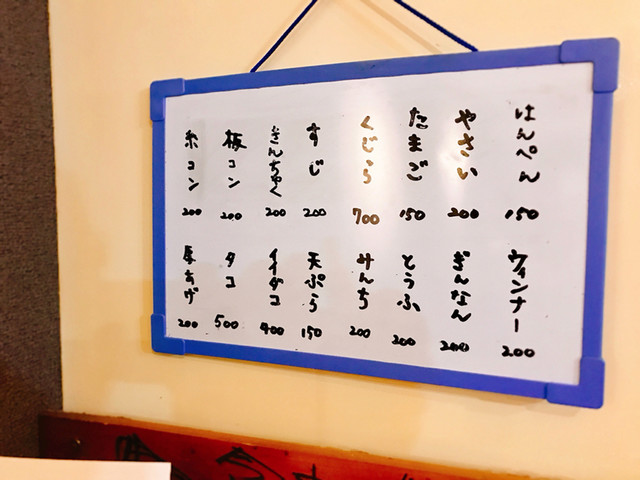 はんぺん 150
やさい 200
たまご 150
くじら 700
すじ 200
きんちゃく 200
板コン 200
糸コン 200
ウィンナー 200
ぎんなん 200
とうふ 200
みんち 200
天ぷら 150
イイダコ 400
タコ 500
厚あげ 200